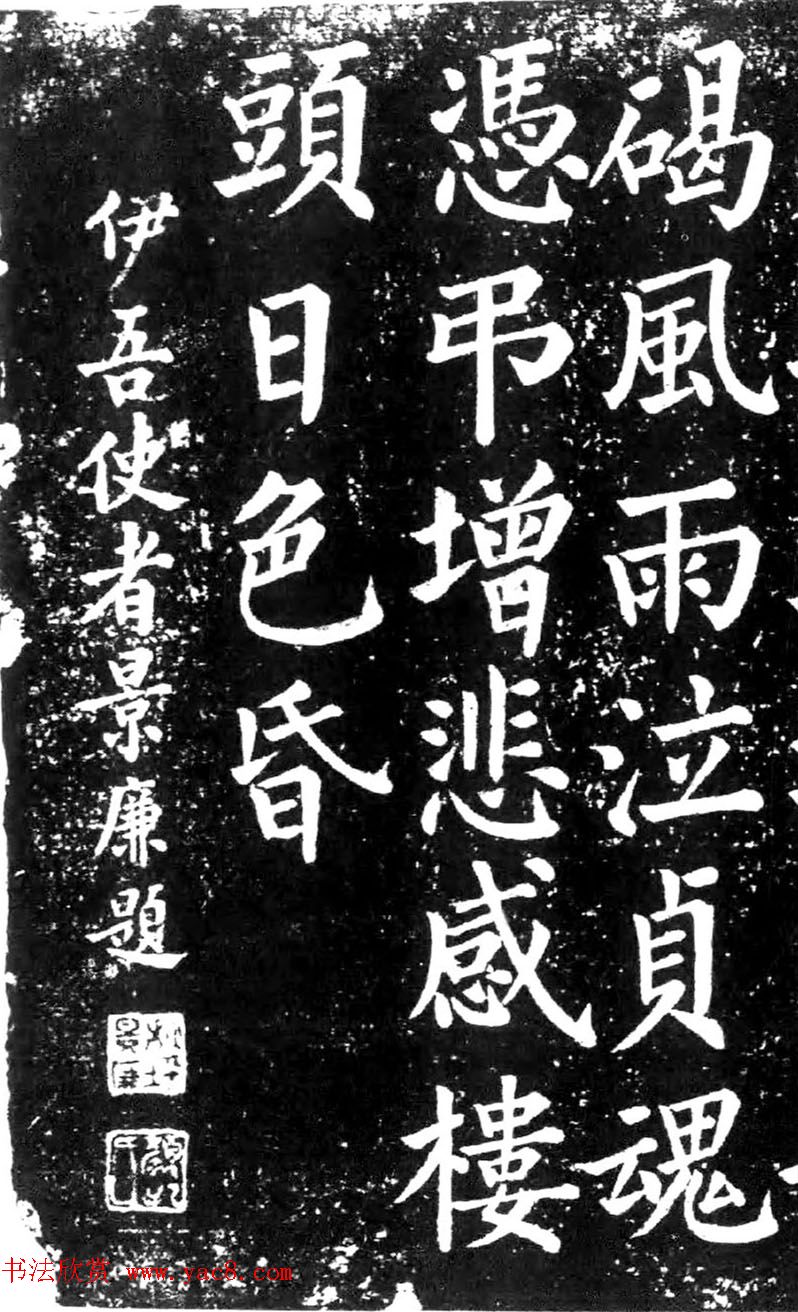 碣風雨泣貞魂
憑弔增悲感樓
頭日色昏
伊吾使者景廉題
书法欣赏 www.yac8.com